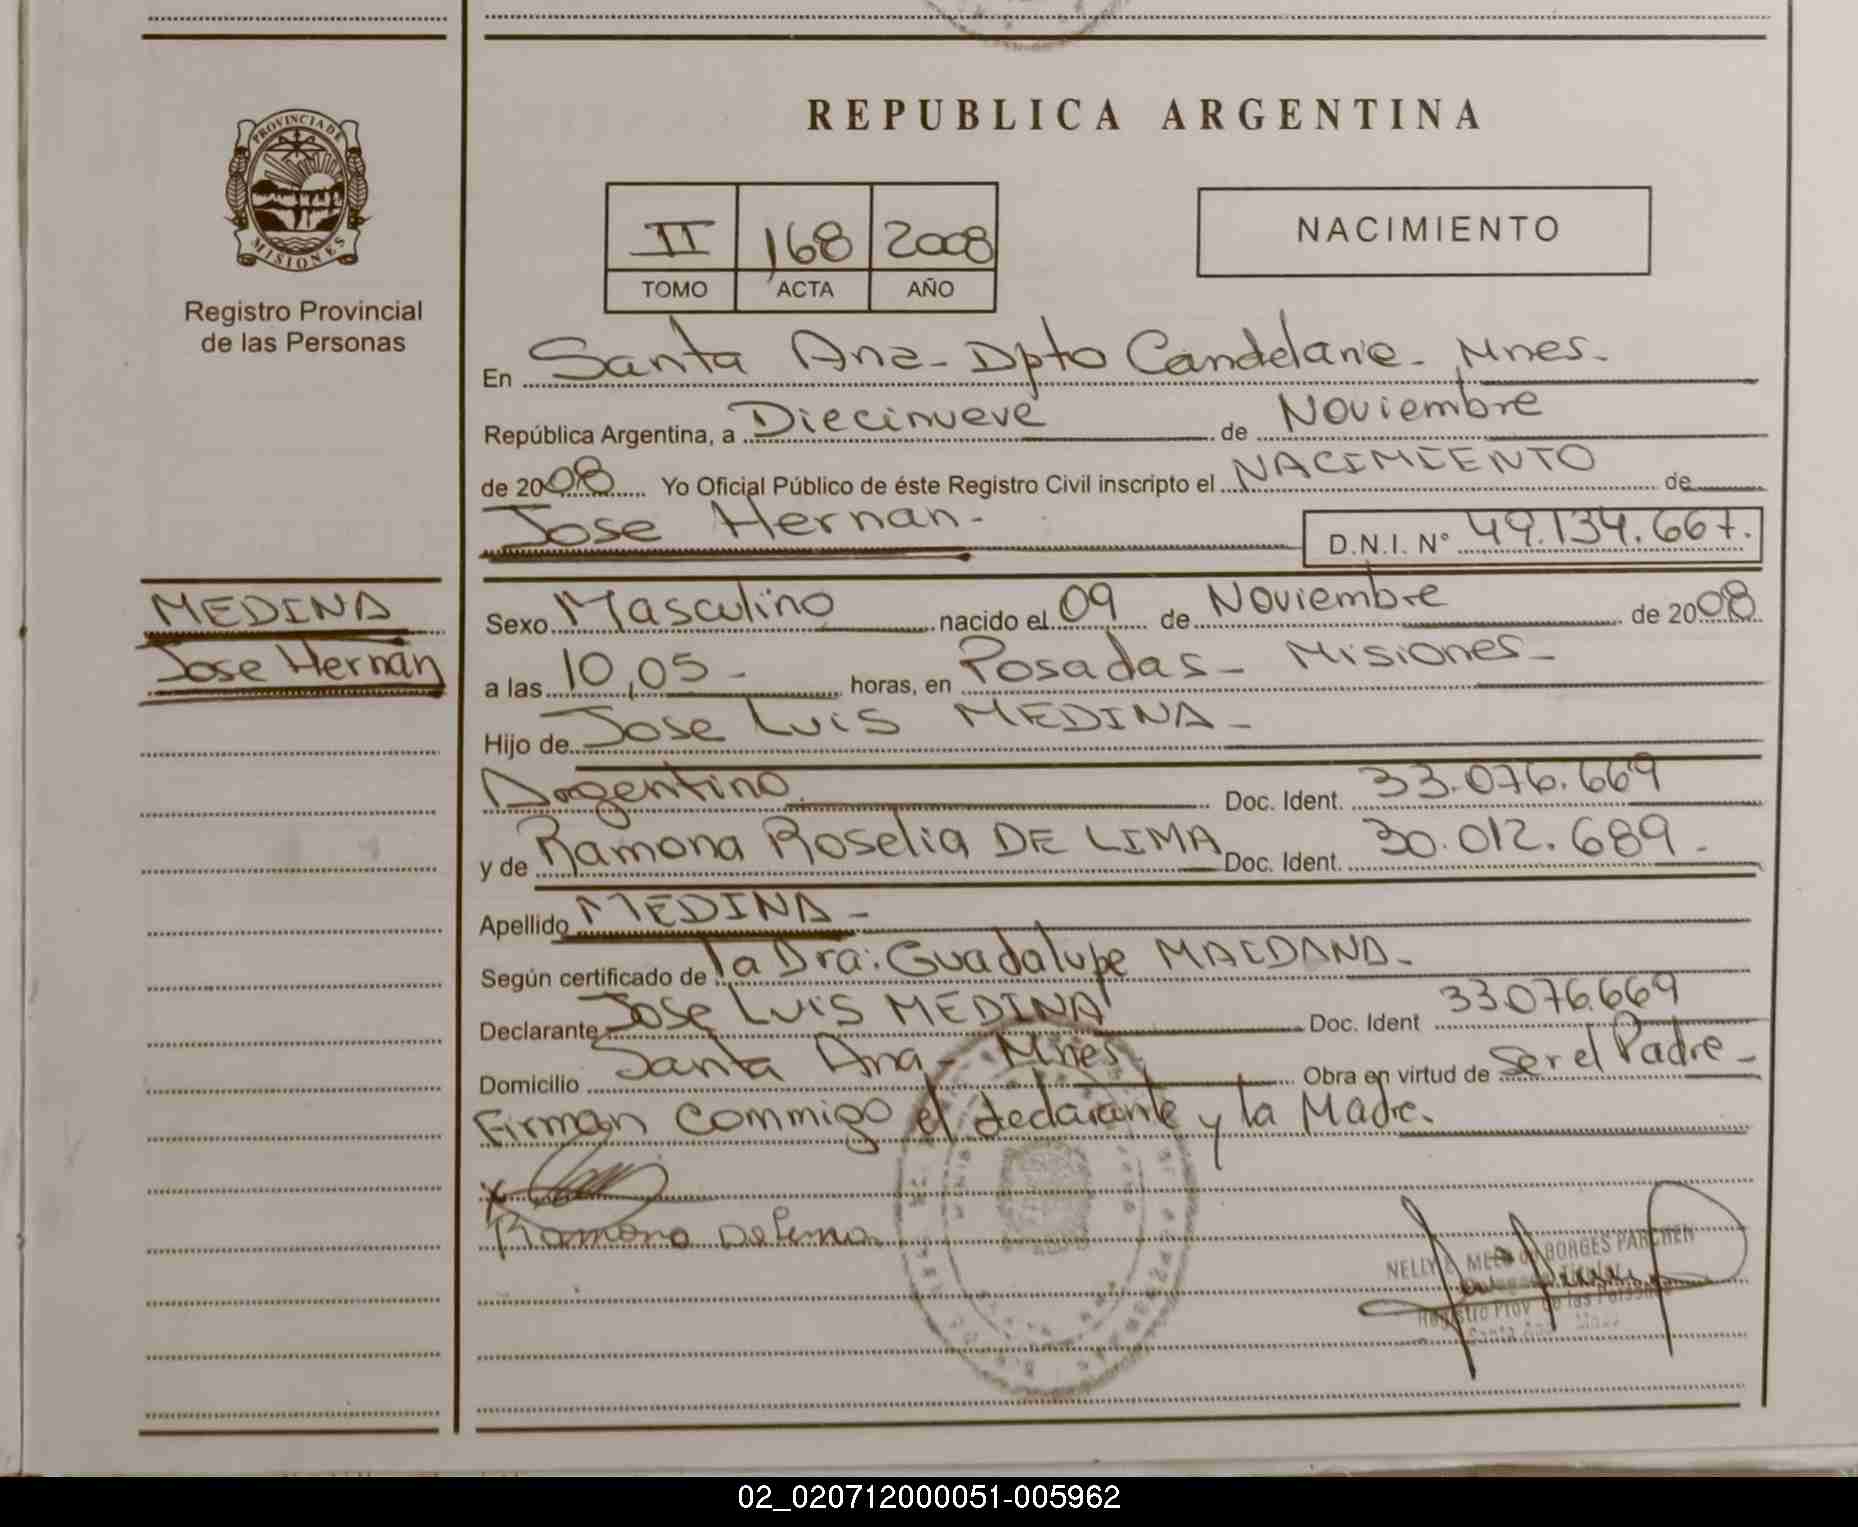 REPUBLICA ARGENTINA
PROVINCIA DE
MISIONES
Registro Provincial
de las Personas
II 168 2008
TOMO ACTA AÑO
NACIMIENTO
En Santa Ana - Dpto Candelaria - Mnes.
República Argentina, a Diecinueve de Noviembre
de 2008 Yo Oficial Público de éste Registro Civil inscripto el NACIMIENTO de
Jose Hernan - D.N.I. N° 49.134.667.
MEDINA
Jose Hernan
Sexo Masculino nacido el 09 de Noviembre de 2008
a las 10,05 - horas, en Posadas - Misiones -
Hijo de Jose Luis MEDINA -
Argentino Doc. Ident. 33.076.669
y de Ramona Roselia DE LIMA Doc. Ident. 30.012.689 -
Apellido MEDINA -
Según certificado de la Dra: Guadalupe MALDANA -
Declarante Jose Luis MEDINA Doc. Ident 33076.669
Domicilio Santa Ana - Mnes Obra en virtud de Ser el Padre -
Firman conmigo el declarante y la Madre.
x
Ramona De Lima
NELLY BORGES PARCHEN
Registro Prov. de las Personas
Santa Ana
02_020712000051-005962